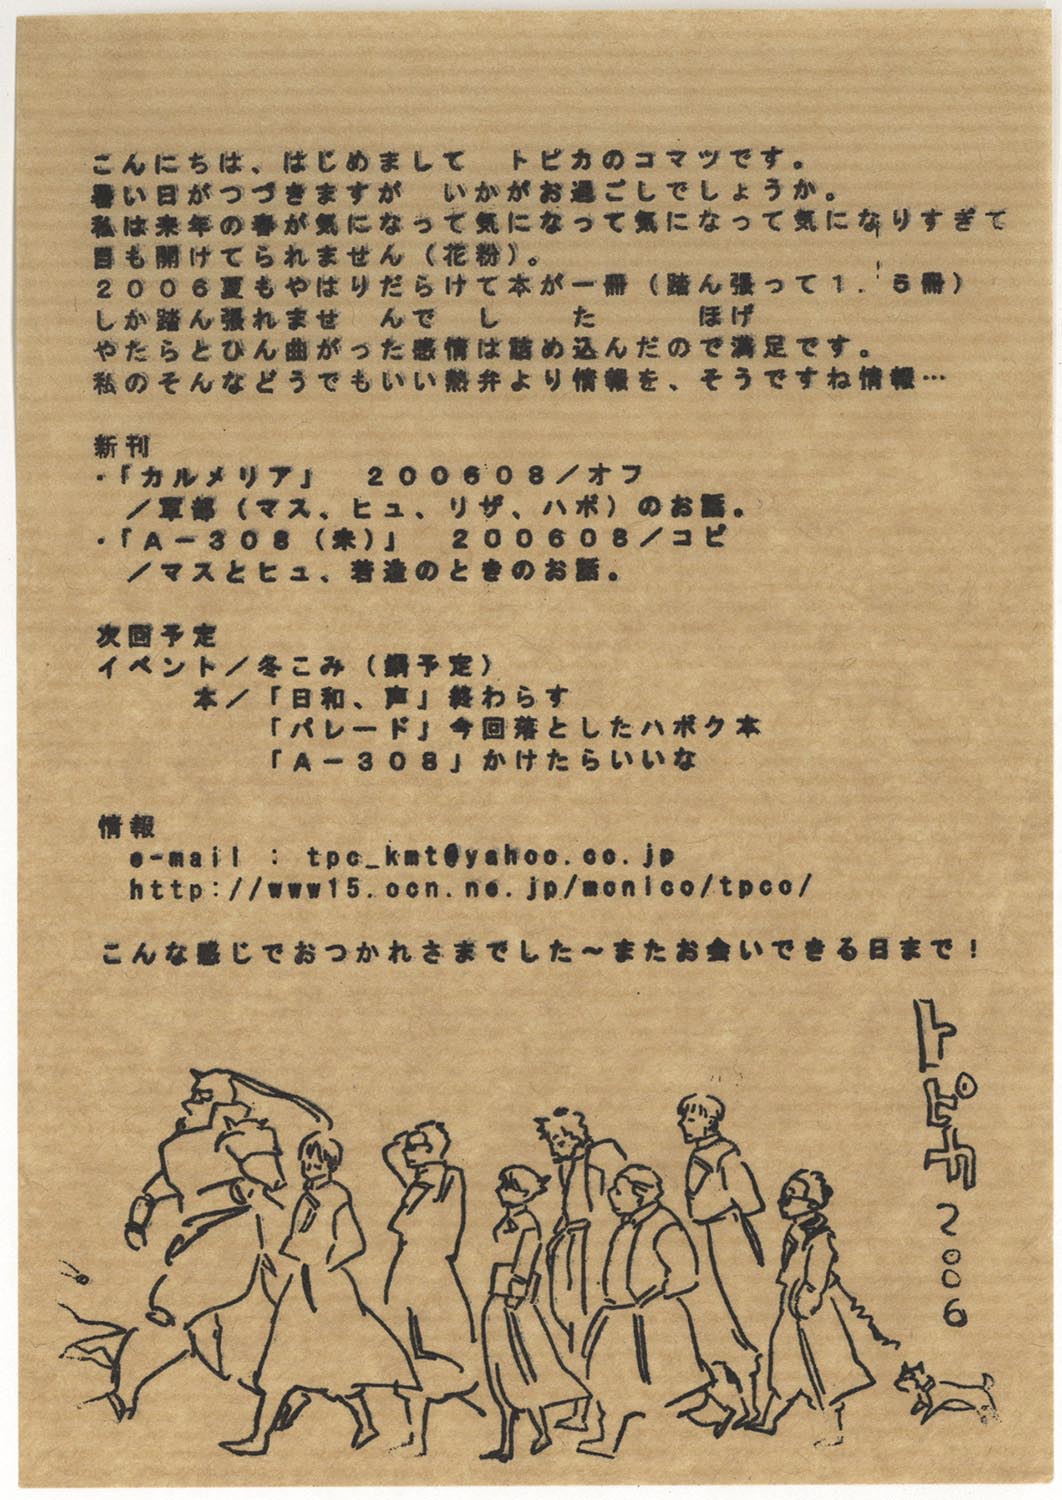 こんにちは、はじめまして　トピカのコマツです。
暑い日がつづきますが　いかがお過ごしでしょうか。
私は来年の春が気になって気になって気になって気になりすぎて
目も開けてられません（花粉）。
２００６夏もやはりだらけて本が一冊（踏ん張って１．５冊）
しか踏ん張れませ　んで　し　　た　　　ほげ
やたらとひん曲がった感情は詰め込んだので満足です。
私のそんなどうでもいい熱弁より情報を、そうですね情報…
新刊
・「カルメリア」　２００６０８／オフ
／軍部（マス、ヒュ、リザ、ハボ）のお話。
・「Ａ－３０８（未）」　２００６０８／コピ
／マスとヒュ、若造のときのお話。
次回予定
イベント／冬こみ（鋼予定）
本／「日和、声」終わらす
「パレード」今回落としたハボク本
「Ａ－３０８」かけたらいいな
情報
e-mail : tpc_kmt@yahoo.co.jp
http://www15.ocn.ne.jp/monico/tpco/
こんな感じでおつかれさまでした～またお会いできる日まで！
トピカ2006